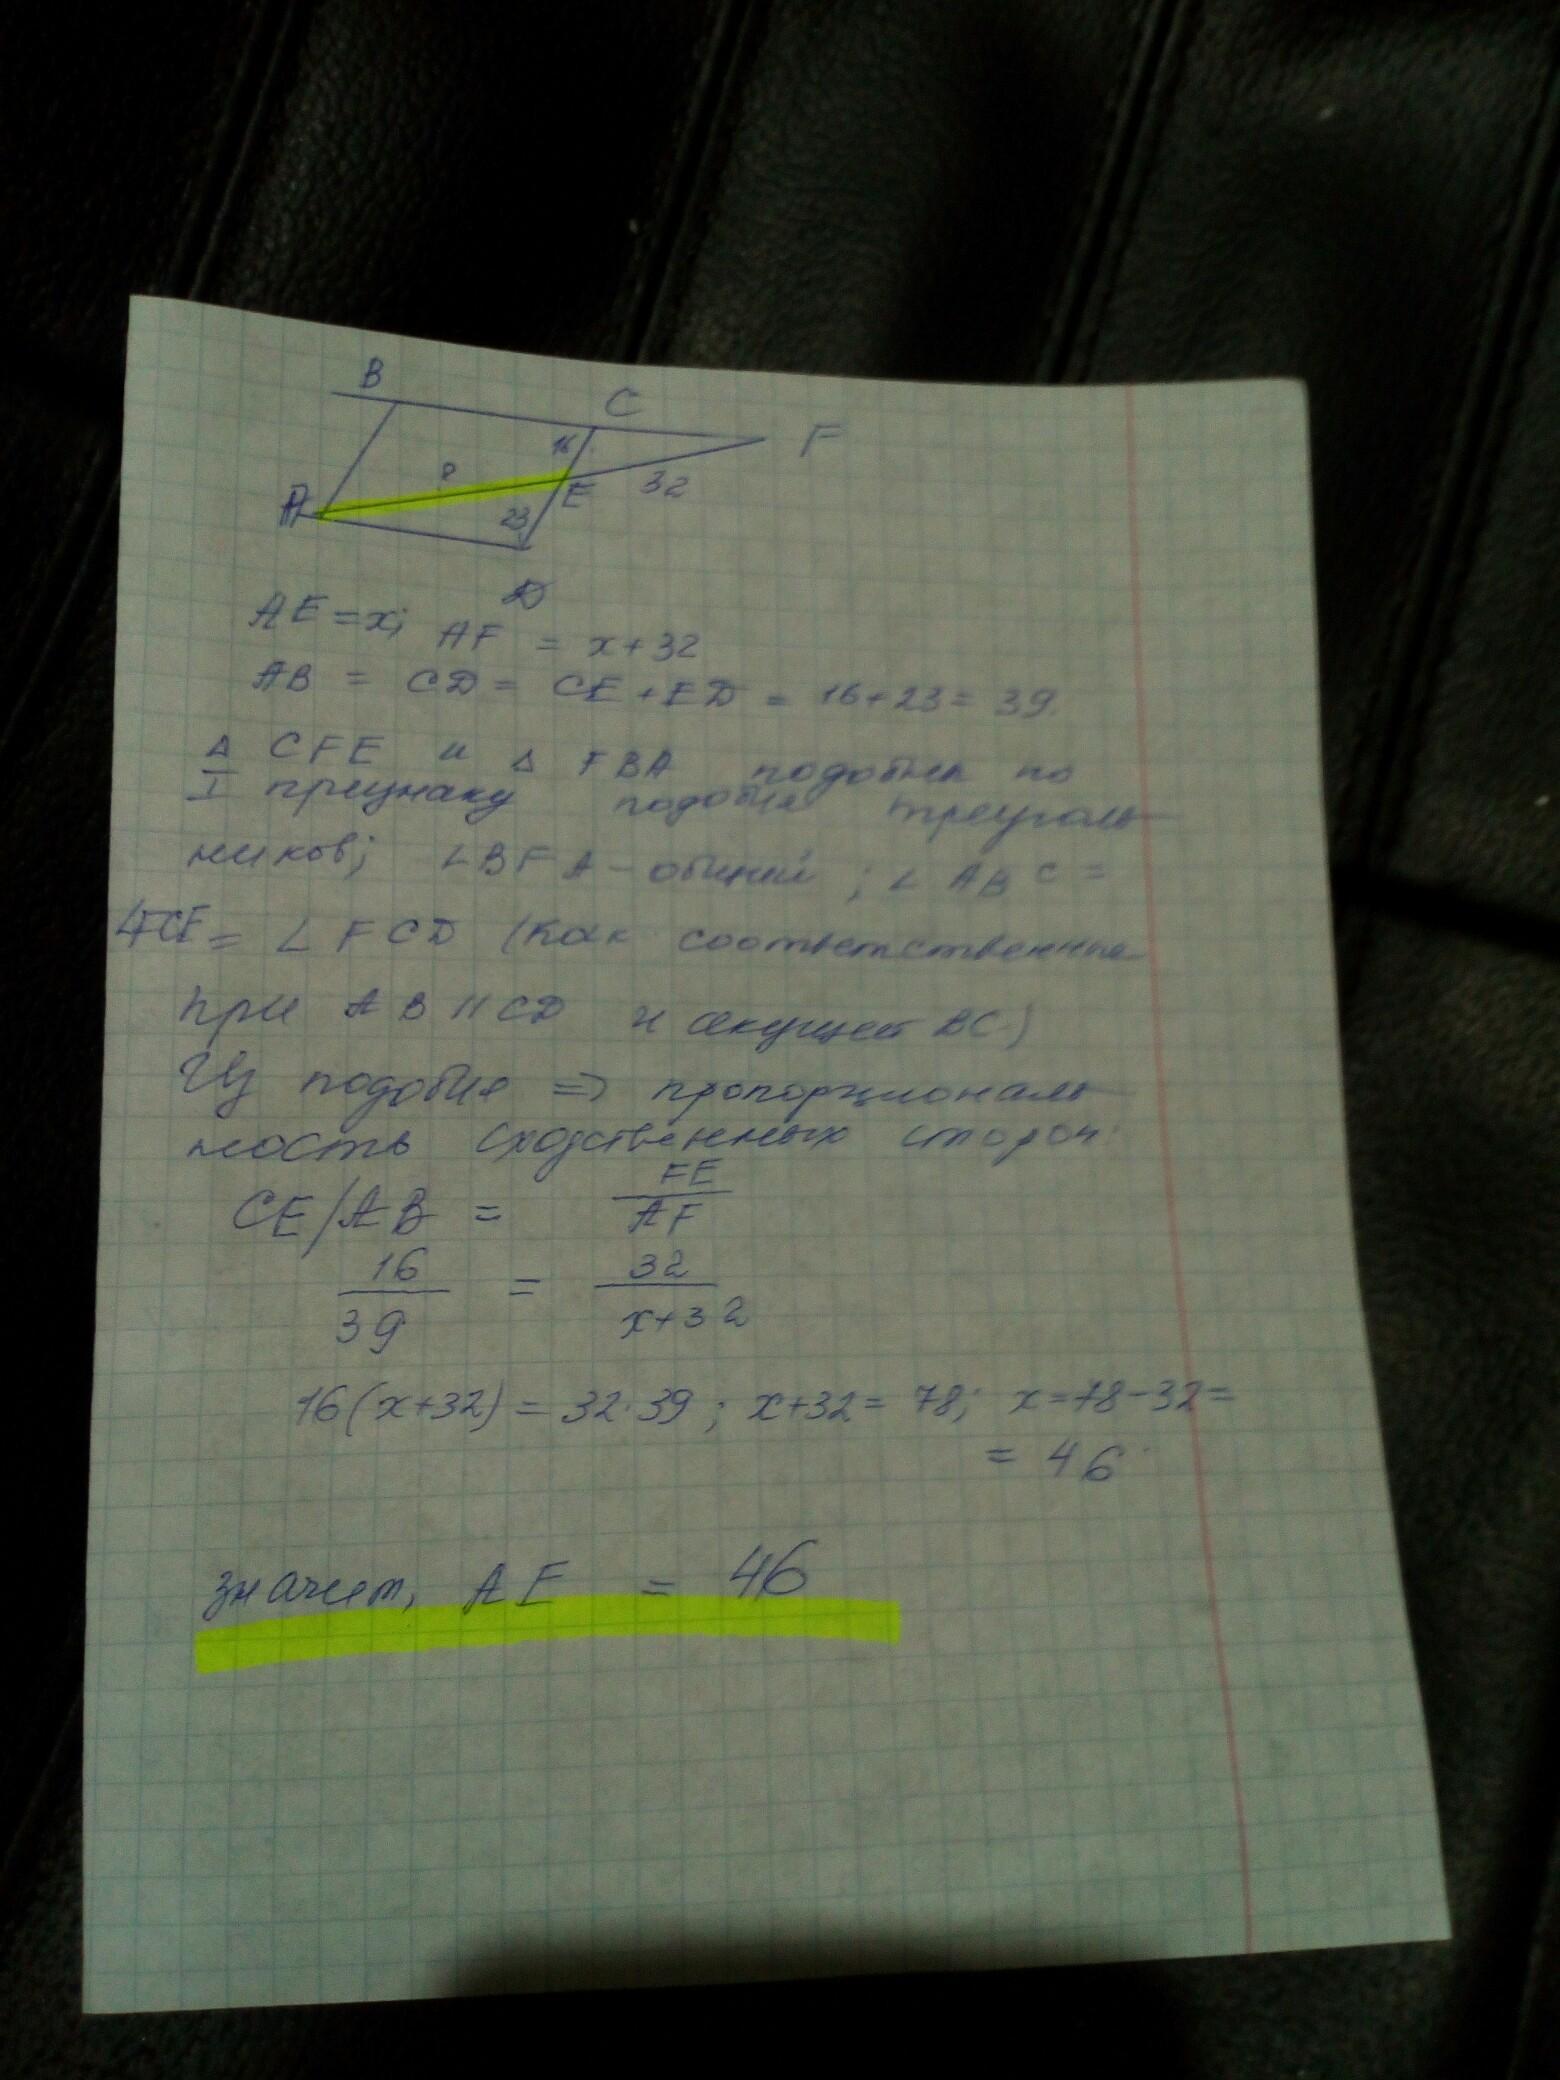 B
C
F
16
?
A
E
32
23
D
AE = x; AF = x + 32
AB = CD = CE + ED = 16 + 23 = 39.
Δ CFE и Δ FBA подобны по
I признаку подобия треуголь
ников; ∠BFA - общий; ∠ABC =
∠FCE = ∠FCD (как соответственные
при AB || CD и секущей BC)
Из подобия => пропорциональ
ность сходственных сторон:
CE/AB = FE/AF
16/39 = 32/x+32
16(x+32) = 32·39; x+32 = 78; x = 78-32 =
= 46
значит, AE = 46